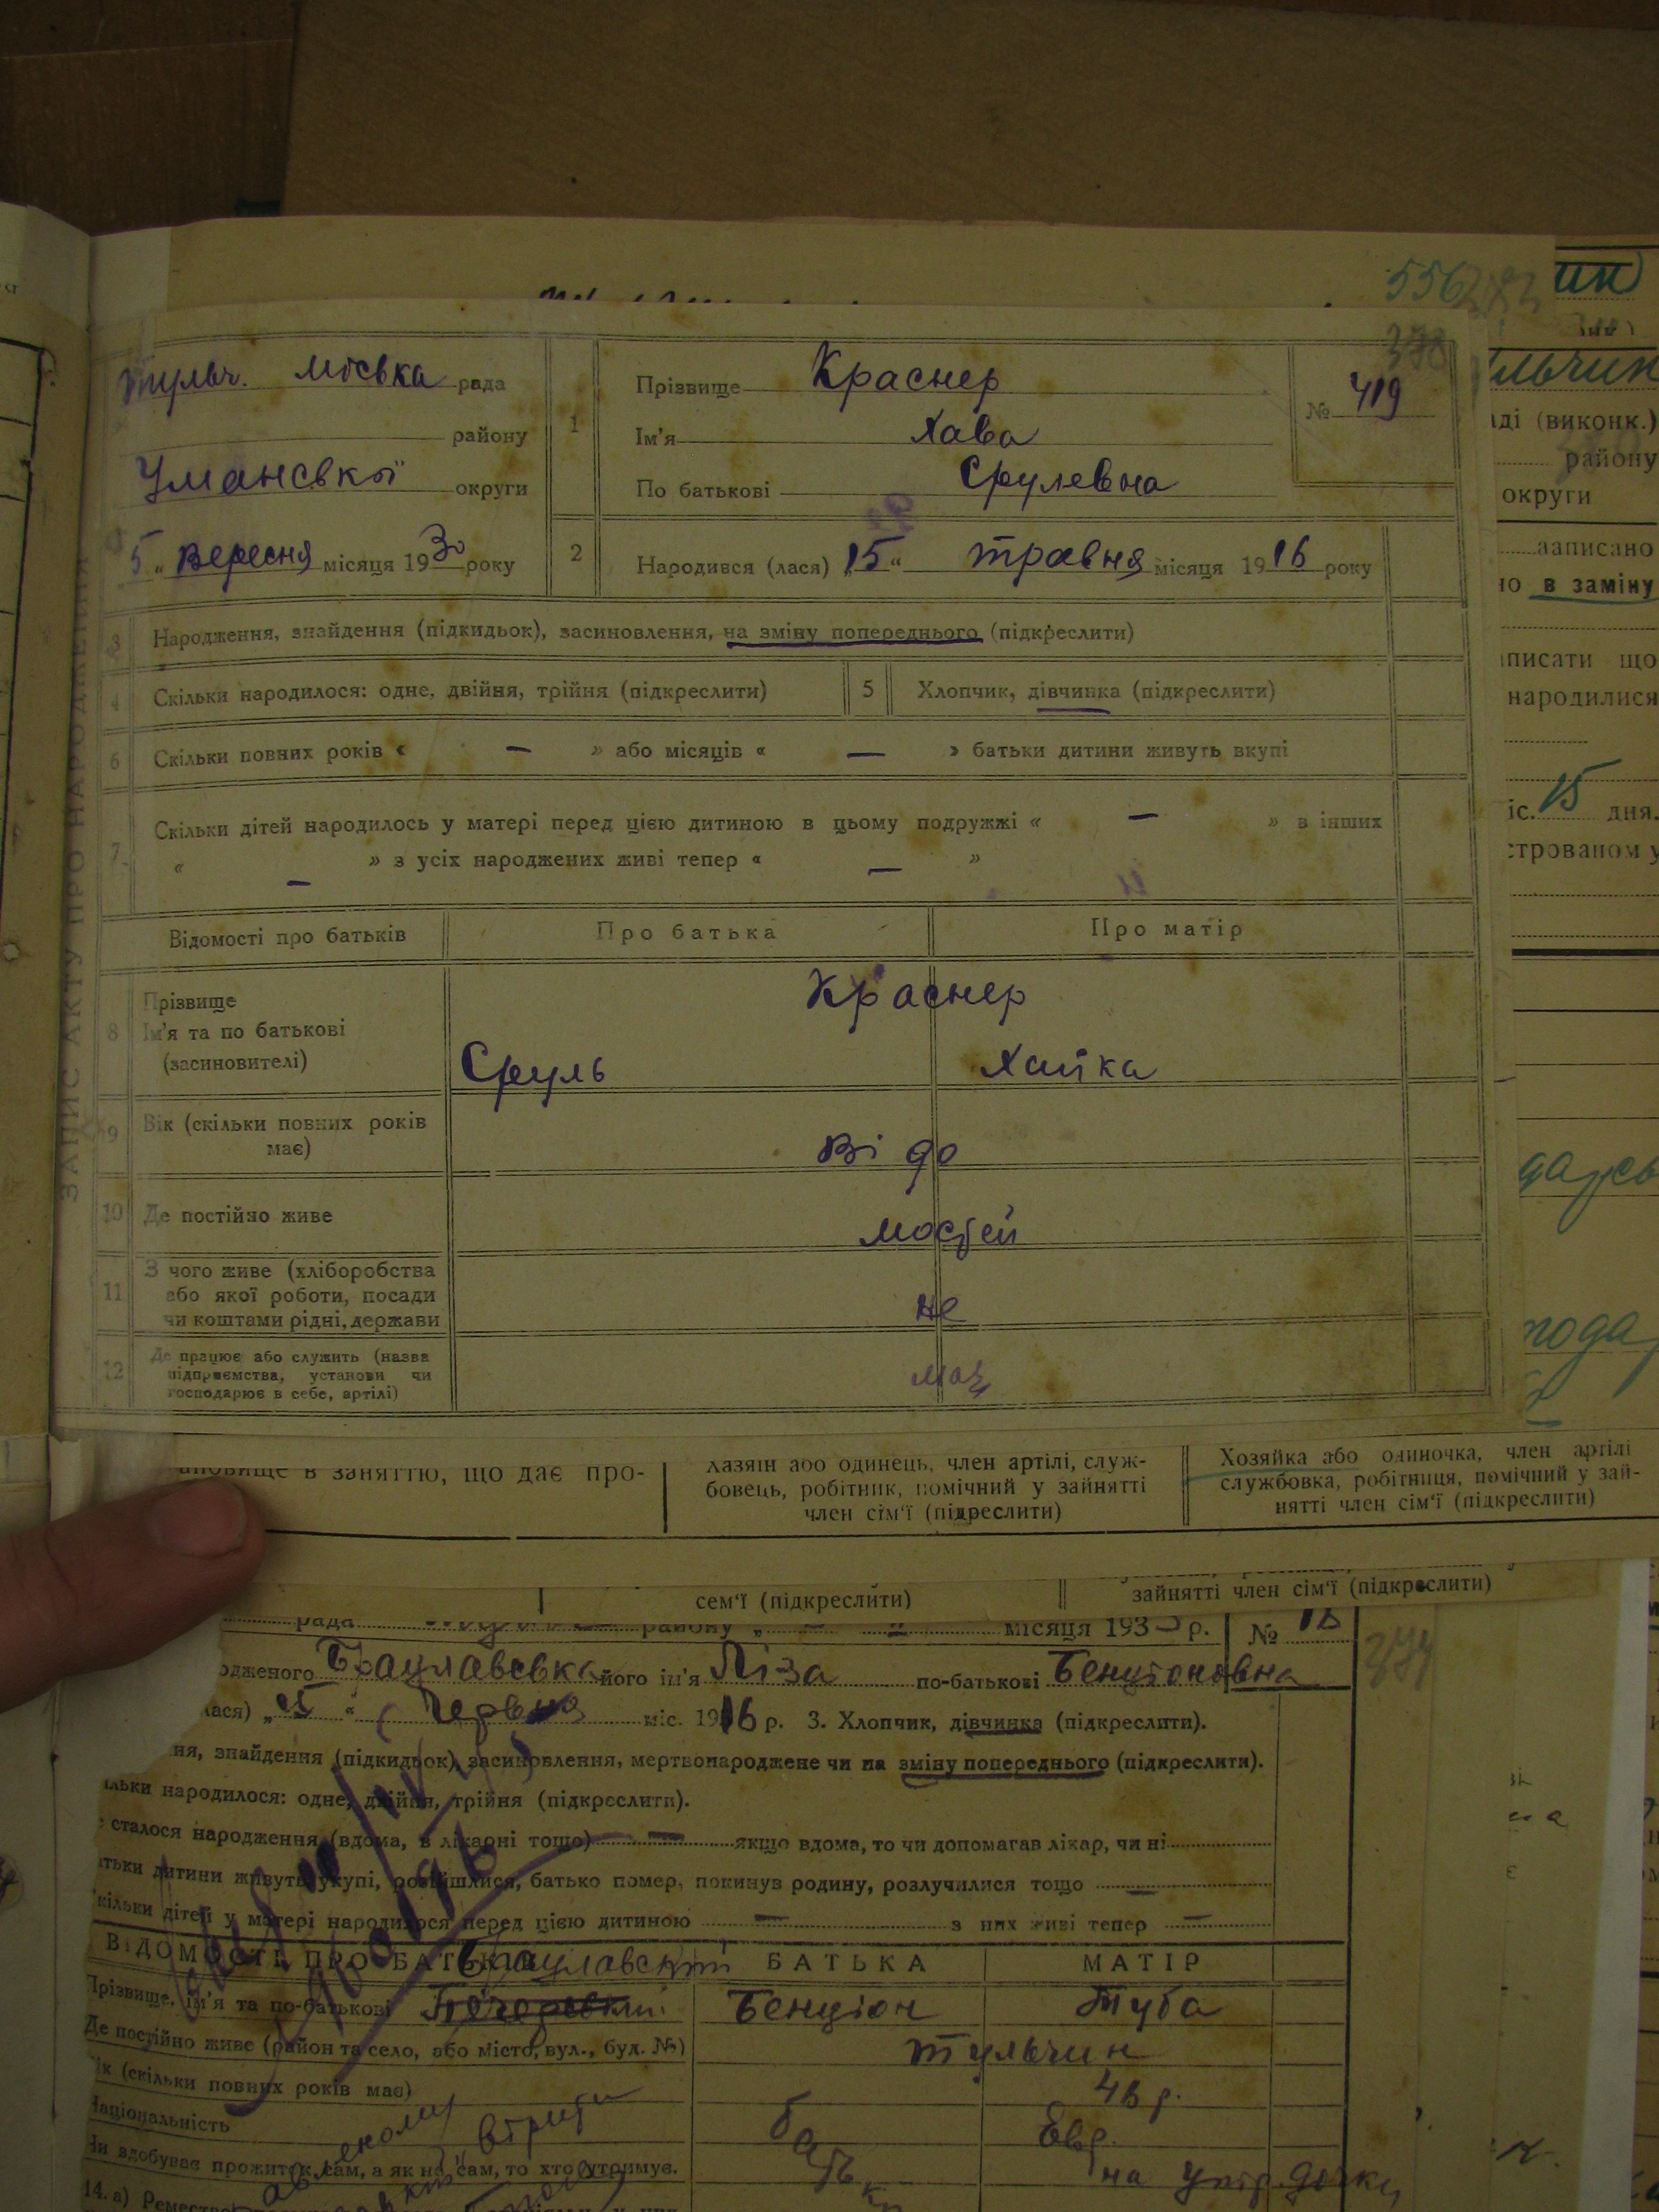 556
378
тульч. міська рада
району
Уманської округи
5 „ вересня місяця 1930 року
1
Прізвище Краснер
Ім'я Хава
По батькові Срулевна
№ 419
2
Народився (лася) „15“ травня місяця 1916 року
ЗАПИС АКТУ ПРО НАРОДЖЕННЯ
3 Народження, знайдення (підкидьок), засиновлення, на зміну попереднього (підкреслити)
4 Скільки народилося: одне, двійня, трійня (підкреслити)
5 Хлопчик, дівчинка (підкреслити)
6 Скільки повних років « — » або місяців « — » батьки дитини живуть вкупі
7 Скільки дітей народилось у матері перед цією дитиною в цьому подружжі « — » в інших
« — » з усіх народжених живі тепер « — »
Відомості про батьків Про батька Про матір
8 Прізвище
Ім'я та по батькові
(засиновителі)
Краснер
Сруль Хайка
9 Вік (скільки повних років
має)
Ві до
10 Де постійно живе
мостей
11 З чого живе (хліборобства
або якої роботи, посади
чи коштами рідні, держави
не
12 Де працює або служить (назва
підприємства, установи чи
господарює в себе, артілі)
має
ин
льчин
ді (виконк.)
району
округи
записано
но в заміну
писати що
народилися
іс. 15 дня.
строваном у
ановище в заняттю, що дає про-
Хазяїн або одинець, член артілі, служ-
бовець, робітник, помічний у зайнятті
член сім'ї (підреслити)
Хозяйка або одиночка, член артілі
службовка, робітниця, помічний у зай-
нятті член сім'ї (підкреслити)
сем'ї (підкреслити)
зайнятті член сім'ї (підкреслити)
рада району місяця 193 р. № 18
одженого Брацлавська його ім'я Ліза по-батькові Бенционовна
лася) „25“ червня міс. 1916 р. 3. Хлопчик, дівчинка (підкреслити).
ня, знайдення (підкидьок), засиновлення, мертвонароджене чи на зміну попереднього (підкреслити).
ільки народилося: одне, двійня, трійня (підкреслити).
сталося народження (вдома, в лікарні тощо) — якщо вдома, то чи допомагав лікар, чи ні
тьки дитини живуть укупі, розійшлися, батько помер, покинув родину, розлучилися тощо —
кільки дітей у матері народилося перед цією дитиною — з них живі тепер —
ВІДОМОСТІ ПРО БАТЬКІВ БАТЬКА МАТІР
Брацлавский
Прізвище, ім'я та по-батькові Бенціон Туба
Де постійно живе (район та село, або місто, вул., буд. №) тульчин
ік (скільки повних років має) 48 р.
Національність Євр.
Чи вдобуває прожиток сам, а як не сам, то хто утримує. на утр. дочки
14. а)